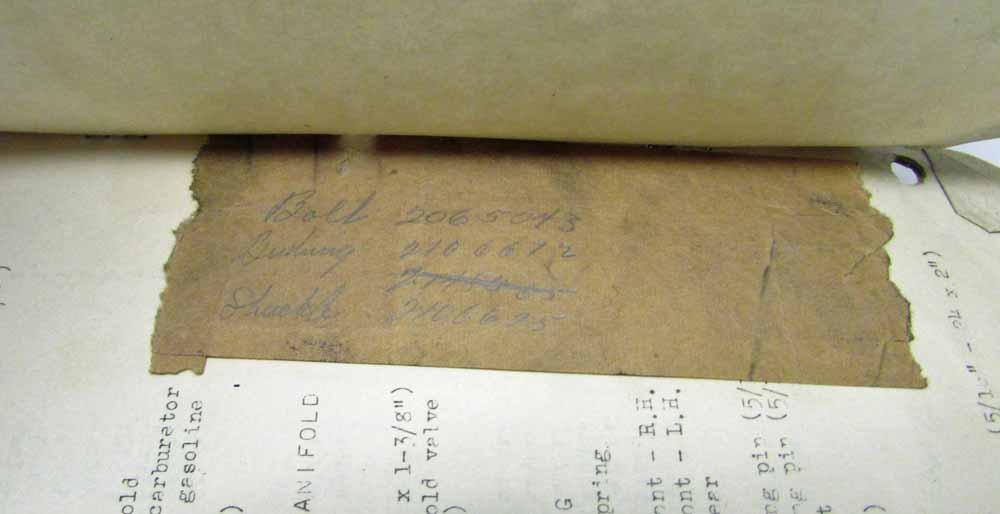 Bolt 2065043
Bushing 2106672
Shackle 2106625
old
carburetor
gasoline
)
ANIFOLD
x 1-3/8")
old valve
)
G
pring
ont - R.H.
ont - L.H.
ear
ng pin (5/
ng pin (5/
t
)
(5/16" - 24 x 2")